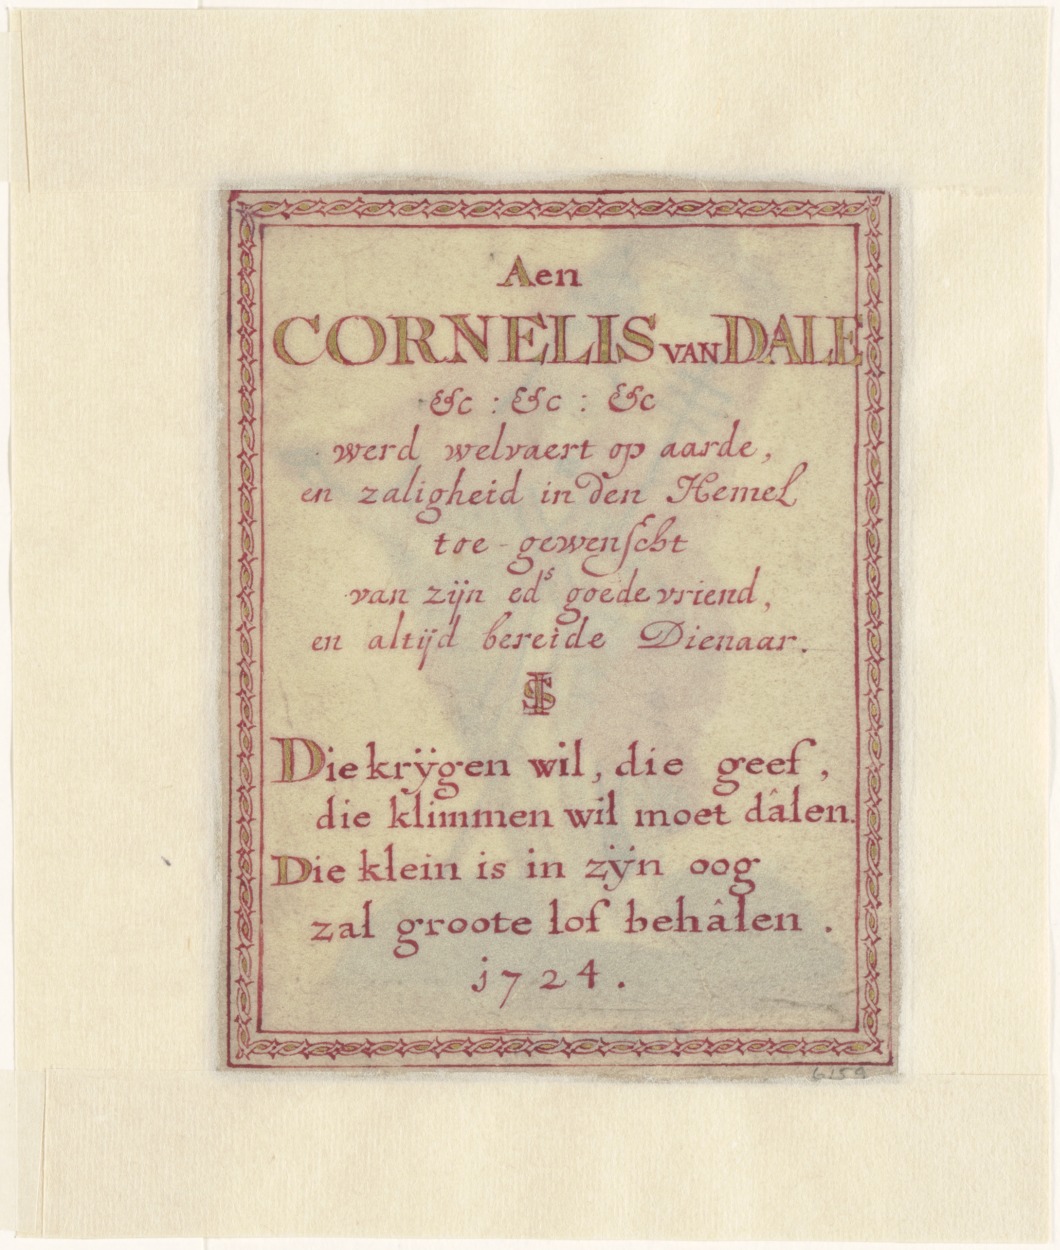 Aen
CORNELIS VAN DALE
&c : &c : &c
werd welvaert op aarde,
en zaligheid in den Hemel
toe-gewenscht
van zijn ed^s goede vriend,
en altijd bereide Dienaar.
IS
Die krÿgen wil, die geef,
die klimmen wil moet dâlen.
Die klein is in zÿn oog
zal groote lof behâlen.
1724.